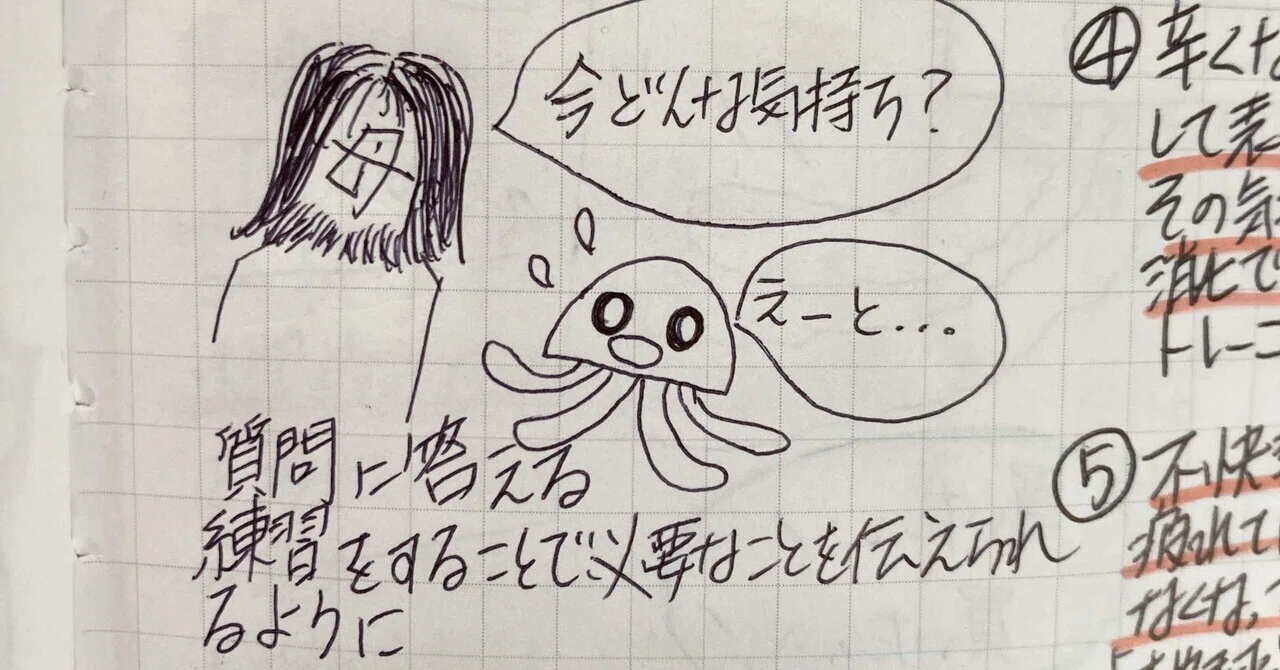 今どんな気持ち?
母
えーと...
質問に答える
練習をすることで必要なことを伝えられ
るように
④ 辛くな
して表
その気
消化で
トレーニ
⑤ 不快
疲れて
なくな、